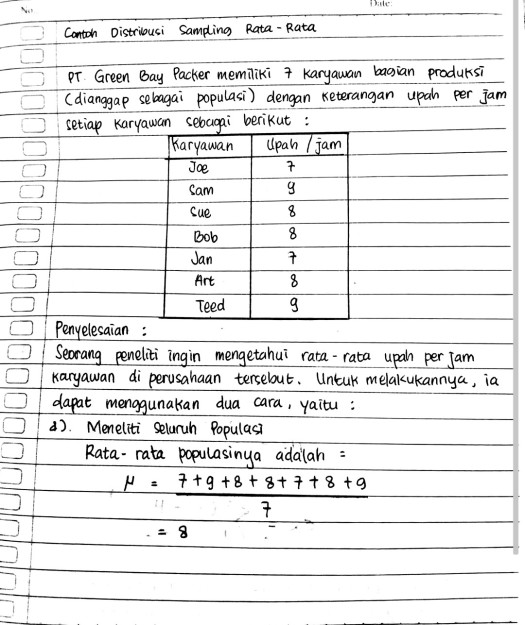 No.
Date:
Contoh Distribusi Sampling Rata-Rata
PT. Green Bay Packer memiliki 7 karyawan bagian produksi
(dianggap sebagai populasi) dengan keterangan upah per jam
setiap karyawan sebagai berikut :
Karyawan Upah / jam
Joe 7
Sam 9
Sue 8
Bob 8
Jan 7
Art 8
Teed 9
Penyelesaian :
Seorang peneliti ingin mengetahui rata-rata upah per jam
karyawan di perusahaan tersebut. Untuk melakukannya, ia
dapat menggunakan dua cara, yaitu :
1). Meneliti Seluruh Populasi
Rata-rata populasinya adalah =
μ = 7+9+8+8+7+8+9
7
= 8